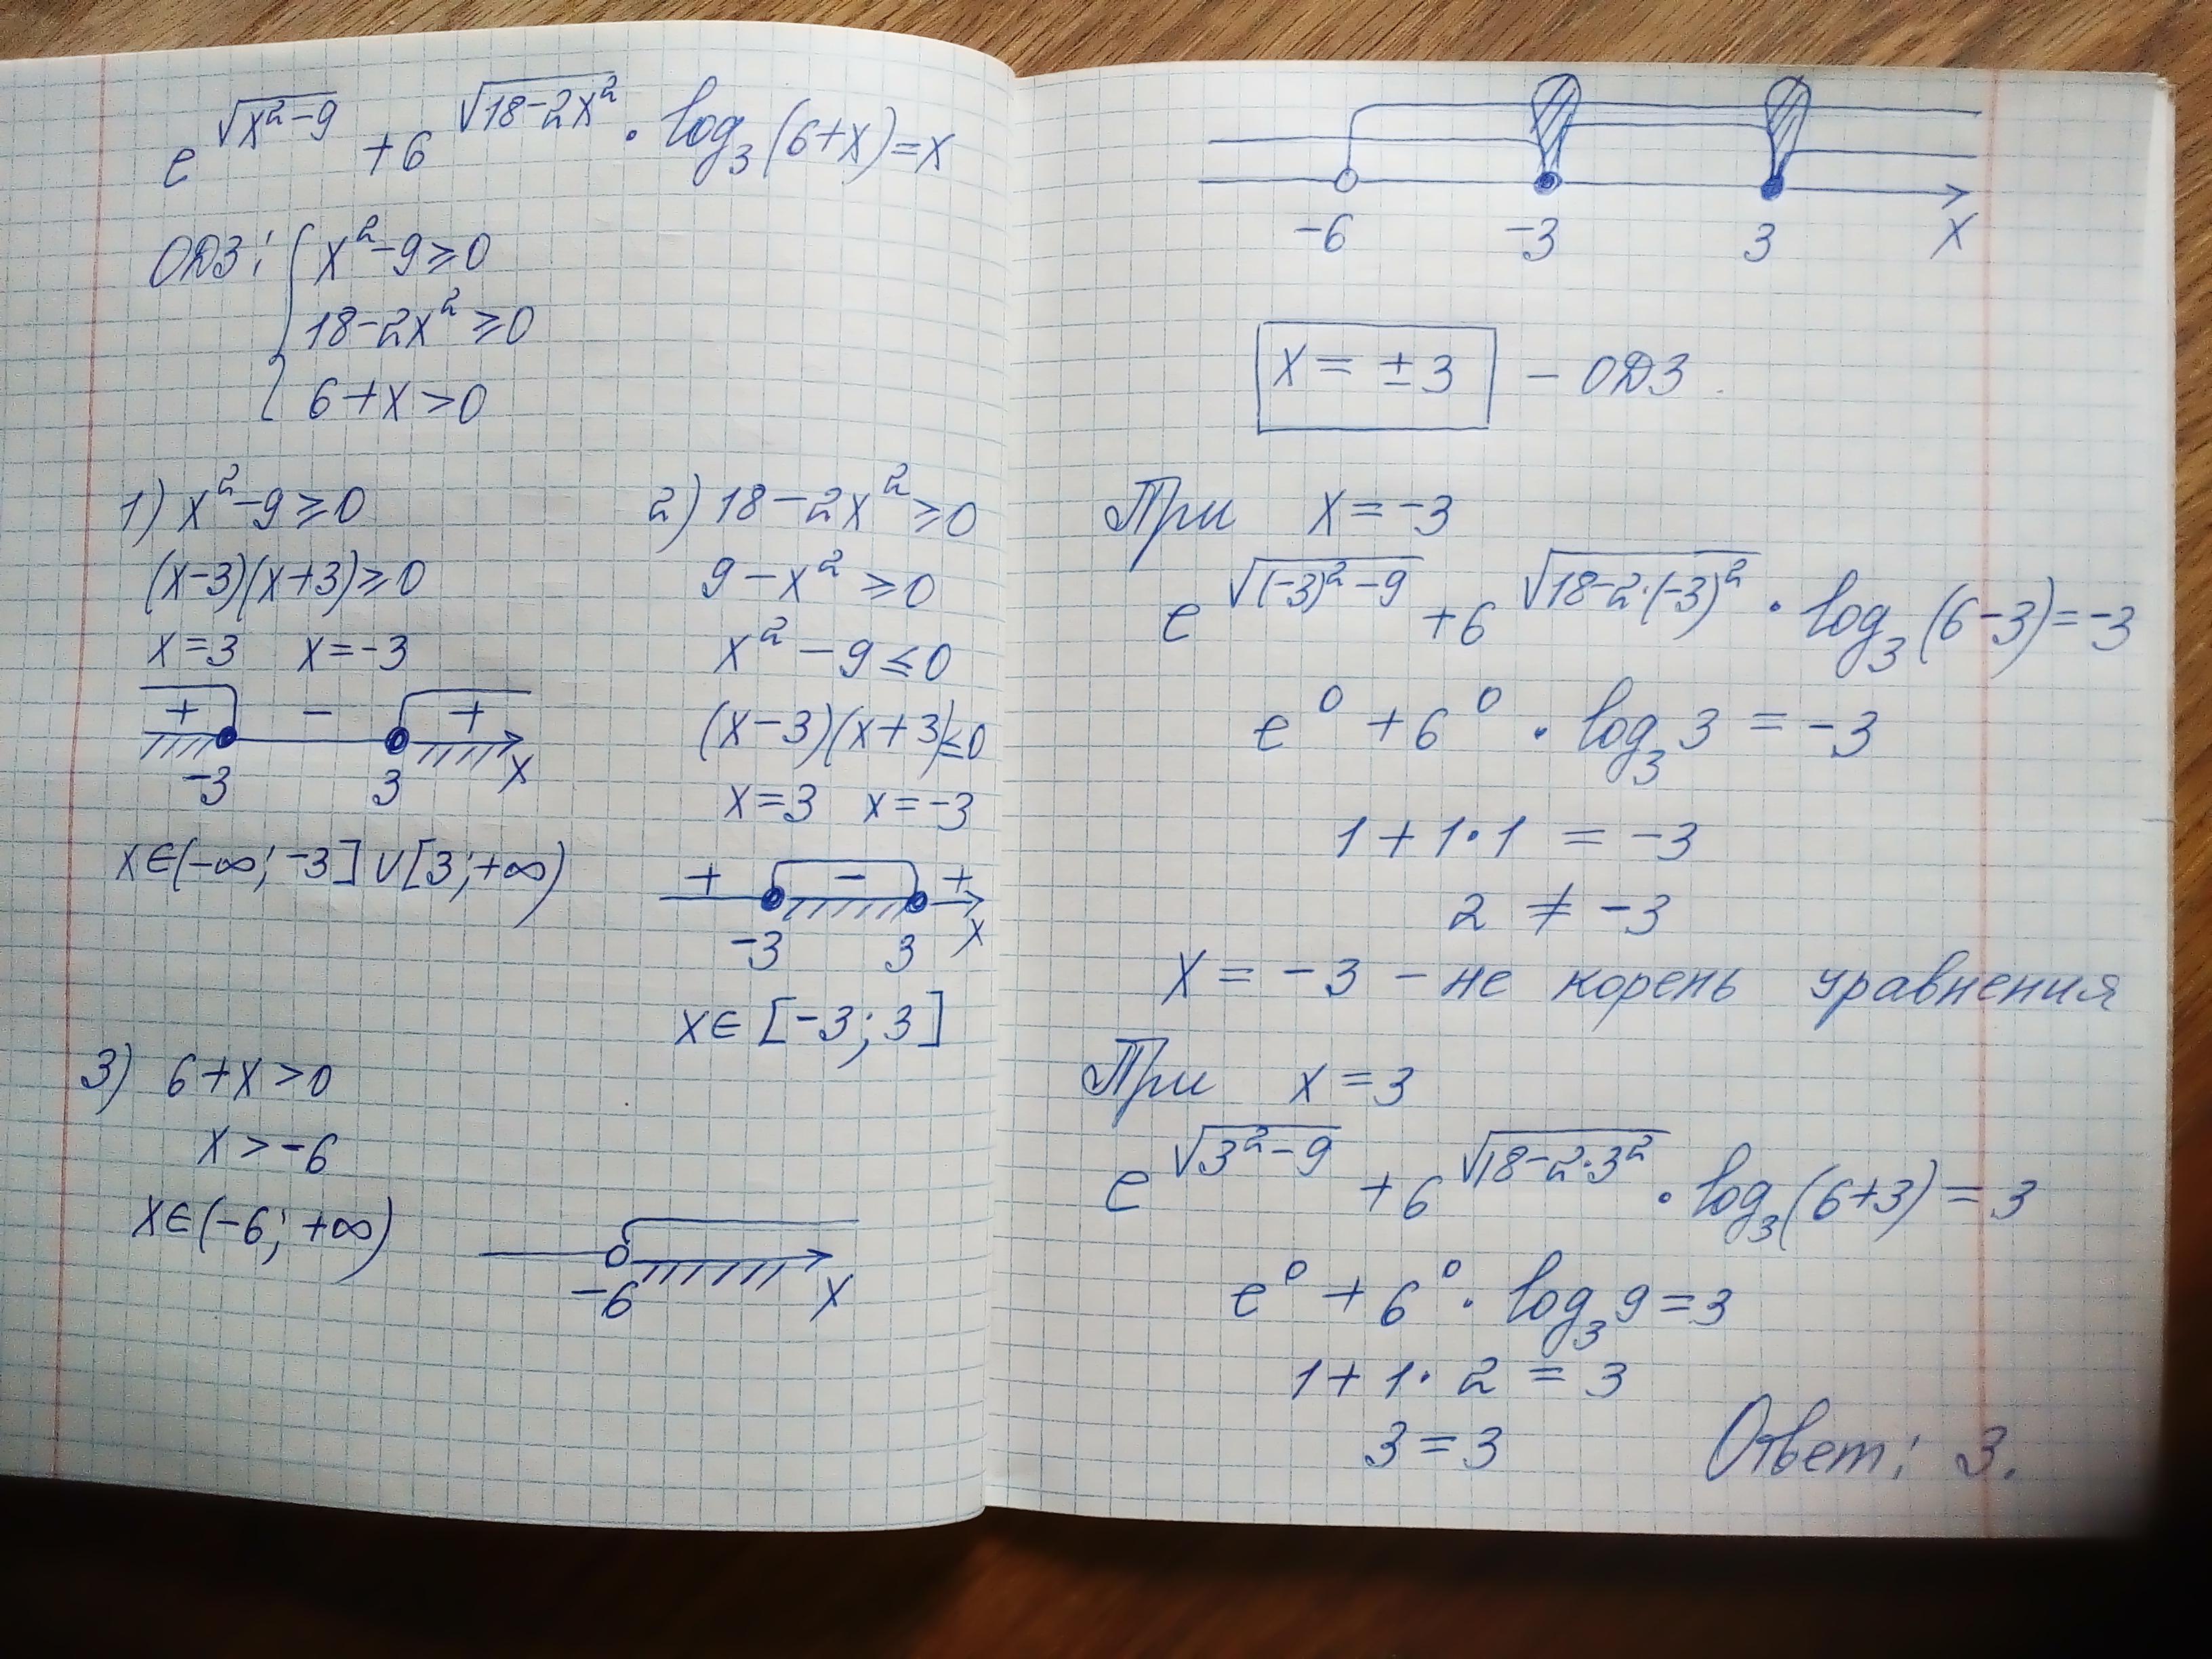 e^√(x²-9) + 6^√(18-2x²) · log₃(6+x)=x
ОДЗ: { x²-9≥0
18-2x²≥0
6+x>0
1) x²-9≥0
(x-3)(x+3)≥0
x=3 x=-3
+ - +
-3 3 x
x∈(-∞;-3]∪[3;+∞)
2) 18-2x²≥0
9-x²≥0
x²-9≤0
(x-3)(x+3)≤0
x=3 x=-3
+ - +
-3 3 x
x∈[-3;3]
3) 6+x>0
x>-6
x∈(-6;+∞)
-6 x
-6 -3 3 x
x=±3 - ОДЗ
При x=-3
e^√((-3)²-9) + 6^√(18-2·(-3)²) · log₃(6-3)=-3
e⁰ + 6⁰ · log₃3 = -3
1+1·1 = -3
2 ≠ -3
x=-3 - не корень уравнения
При x=3
e^√(3²-9) + 6^√(18-2·3²) · log₃(6+3)=3
e⁰ + 6⁰ · log₃9=3
1+1·2=3
3=3 Ответ: 3.